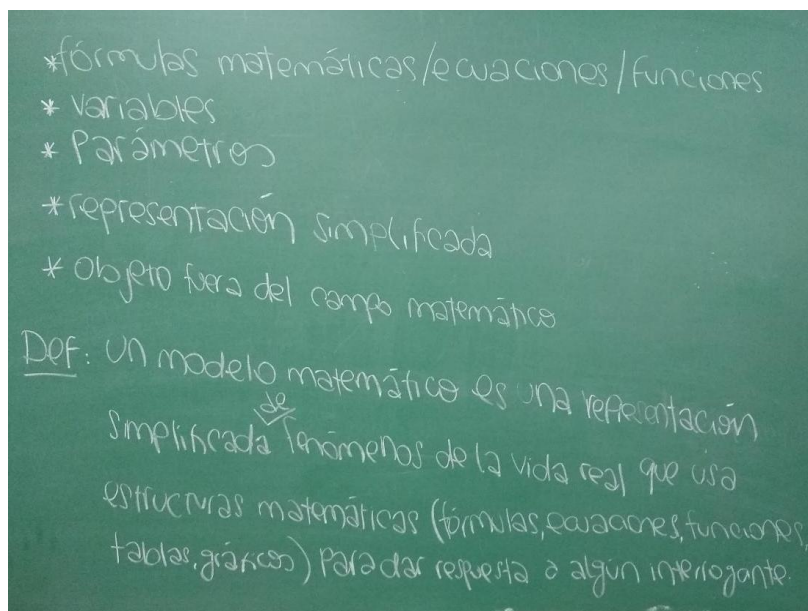 *fórmulas matemáticas/ecuaciones/funciones
* variables
* Parámetros
*representación simplificada
* Objeto fuera del campo matemático
Def: Un modelo matemático es una representación
simplificada de fenómenos de la vida real que usa
estructuras matemáticas (fórmulas, ecuaciones, funciones,
tablas, gráficos) Para dar respuesta a algún interrogante.